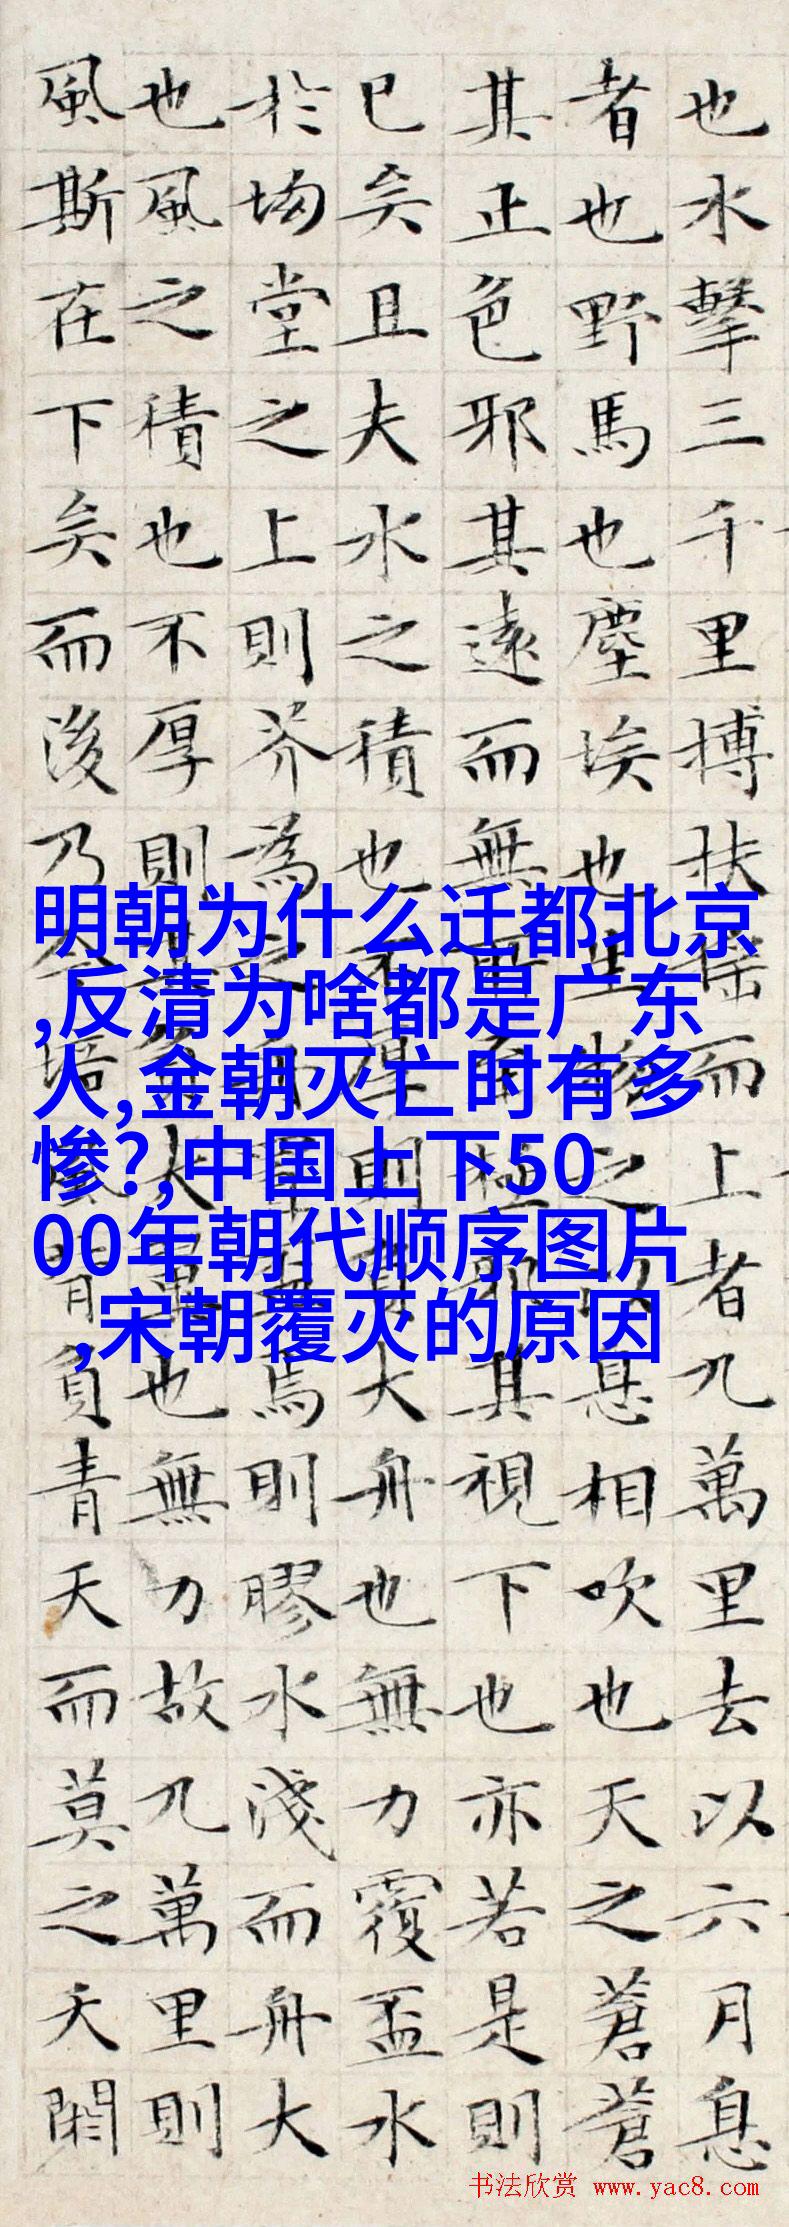 也水擊三千里搏扶搖而上者九萬里去以六月息
者也野馬也塵埃也生物之以息相吹也天之蒼蒼
其正色邪其遠而無所至極邪其視下也亦若是則
已矣且夫水之積也不厚則負大舟也無力覆盃水
於坳堂之上則芥為之舟置盃焉則膠水淺而舟大
也風之積也不厚則其負大翼也無力故九萬里則
風斯在下矣而後乃今培風背負青天而莫之夭閼
明朝为什么迁都北京
,反清为啥都是广东
人,金朝灭亡时有多
惨?,中国上下50
00年朝代顺序图片
,宋朝覆灭的原因
书法欣赏 www.yac8.com